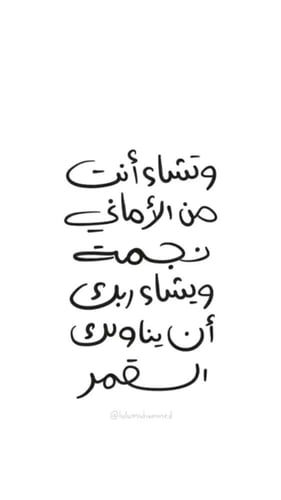 وتشاء أنت
من الأماني
نجمة
ويشاء ربك
أن يناولك
القمر